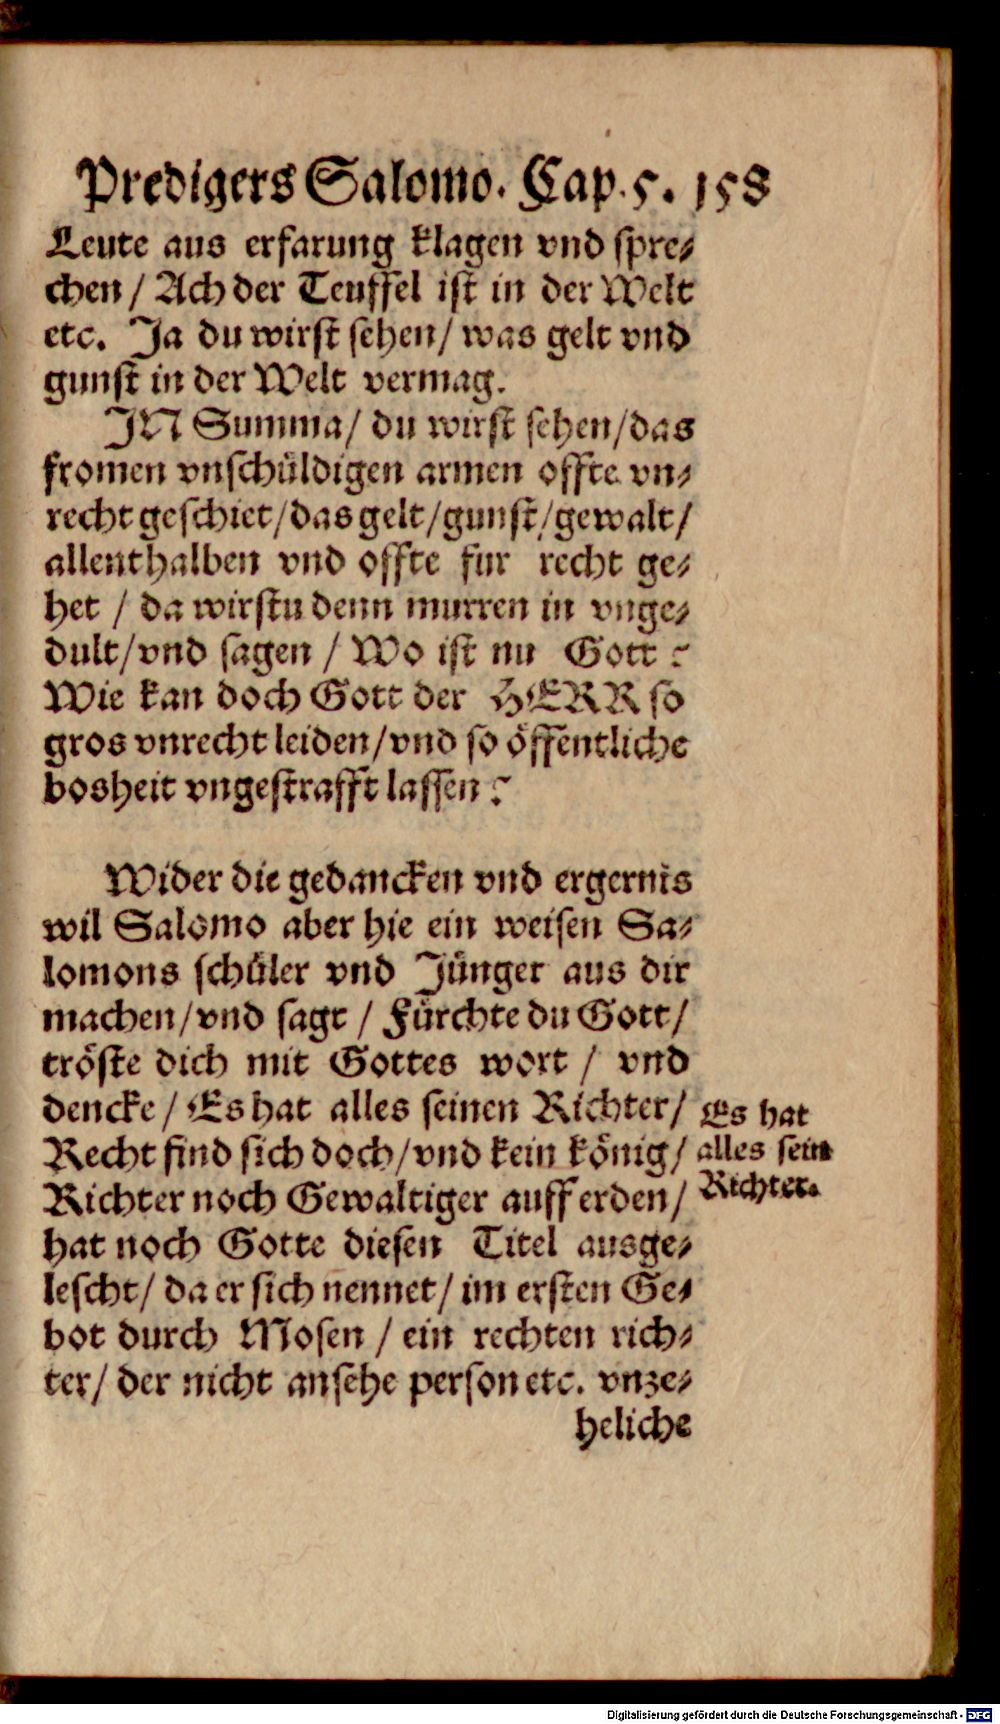 Predigers Salomo. Cap. 5. 158
Leute aus erfarung klagen vnd spre-
chen / Ach der Teuffel ist in der Welt
etc. Ja du wirst sehen / was gelt vnd
gunst in der Welt vermag.
JN Summa / du wirst sehen / das
fromen vnschüldigen armen offte vn-
recht geschiet / das gelt / gunst / gewalt /
allenthalben vnd offte fur recht ge-
het / da wirstu denn murren in vnge-
dult / vnd sagen / Wo ist nu Gott?
Wie kan doch Gott der HERR so
gros vnrecht leiden / vnd so öffentliche
bosheit vngestrafft lassen?
Wider die gedancken vnd ergernis
wil Salomo aber hie ein weisen Sa-
lomons schüler vnd Jünger aus dir
machen / vnd sagt / Fürchte du Gott /
tröste dich mit Gottes wort / vnd
dencke / Es hat alles seinen Richter /
Recht find sich doch / vnd kein könig /
Richter noch Gewaltiger auff erden /
hat noch Gotte diesen Titel ausge-
lescht / da er sich nennet / im ersten Ge-
bot durch Mosen / ein rechten rich-
ter / der nicht ansehe person etc. vnze-
heliche
Es hat
alles sein
Richter.
Digitalisierung gefördert durch die Deutsche Forschungsgemeinschaft - DFG